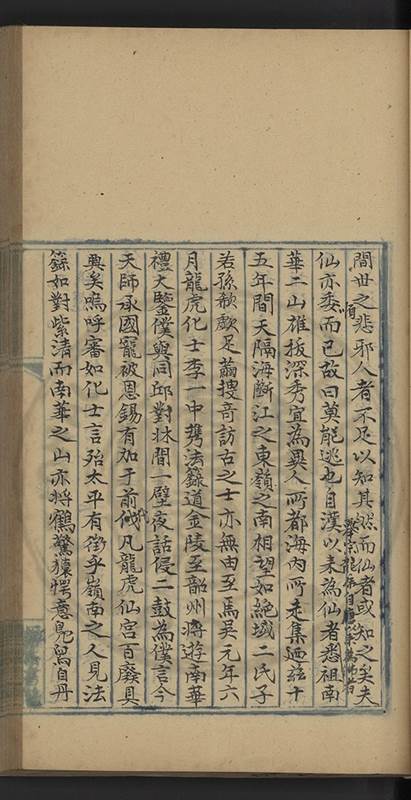 間世之悲邪人者不足以知其然而仙者或知之矣夫
仙亦委而已故曰莫能逃也自漢以來為仙者悉祖南
華二山雄拔深秀宜為異人所都海內所未集迺茲十
五年間天隔海斷江之東嶺之南相望如絕域二氏子
若孫欷歔足繭搜奇訪古之士亦無由至焉吳元年六
月龍虎化士李一中携法籙道金陵至韶州將遊南華
禮大鑒僕與同邱對牀間一壁夜話侵二鼓為僕言今
天師承國寵被恩錫有加于前代凡龍虎仙宮百廢具
興矣嗚呼審如化士言殆太平有徵乎嶺南之人見法
籙如對紫清而南華之山亦將鶴驚猿愕意鳧舄自丹